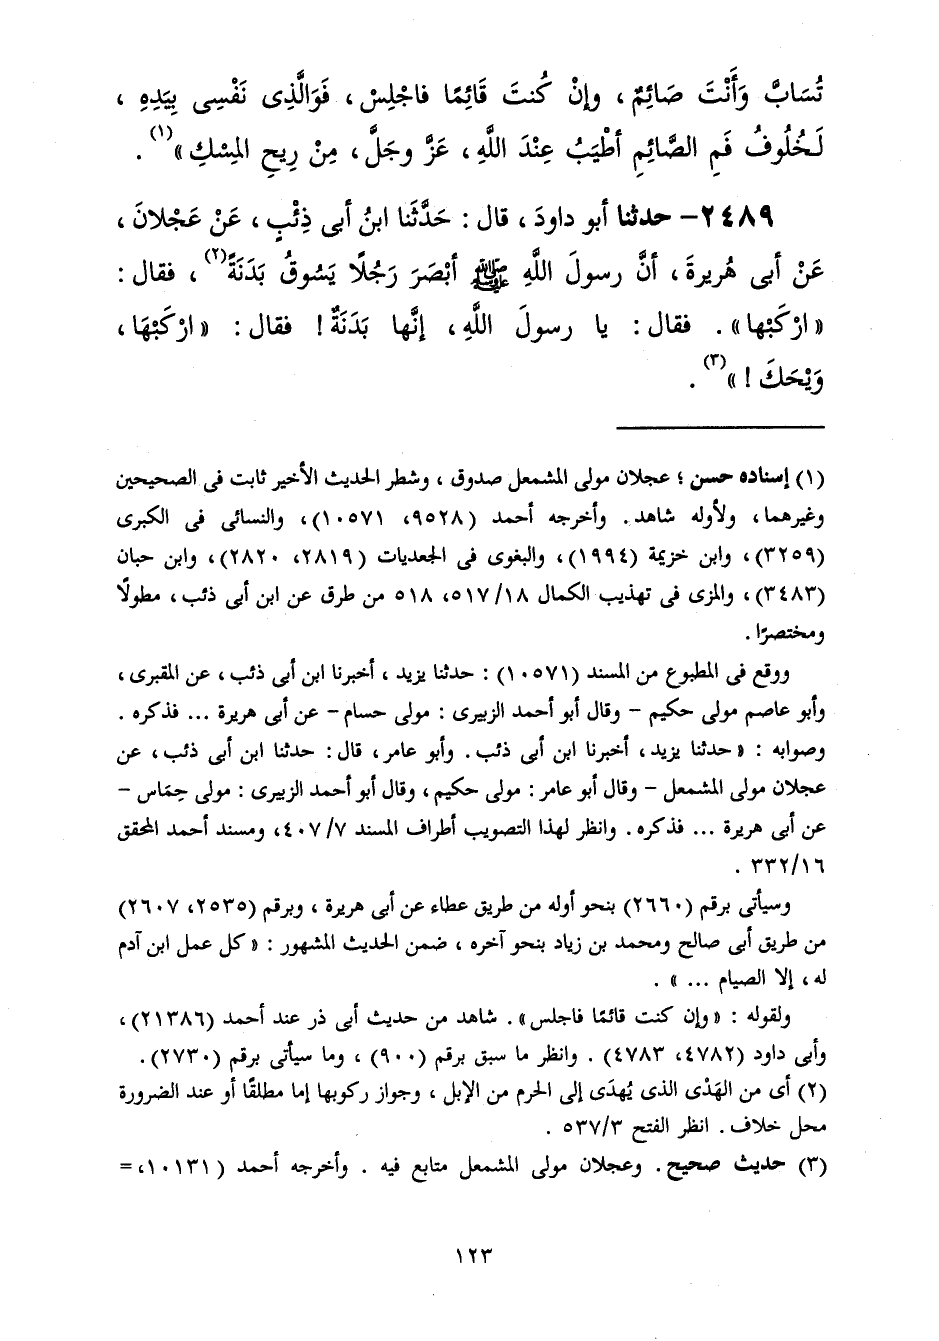 تُسَابَّ وَأَنْتَ صَائِمٌ ، وإنْ كُنتَ قَائِمًا فاجْلِسْ ، فَوَالَّذِى نَفْسِى بِيَدِهِ ،
لَخُلُوفُ فَمِ الصَّائِمِ أطْيَبُ عِنْدَ اللَّهِ ، عَزَّ وجَلَّ ، مِنْ رِيحِ المِسْكِ »(١) .
٢٤٨٩- حدثنا أبو داودَ ، قال : حَدَّثَنا ابنُ أبى ذِئْبٍ ، عَنْ عَجْلانَ ،
عَنْ أبى هُريرةَ ، أنَّ رسولَ اللَّهِ ﷺ أبْصَرَ رَجُلًا يَسُوقُ بَدَنَةً(٢) ، فقال :
« ارْكَبْها » . فقال : يا رسولَ اللهِ ، إنَّها بَدَنَةٌ ! فقال : « ارْكَبْهَا ،
وَيْحَكَ ! »(٣) .
(١) إسناده حسن ؛ عجلان مولى المشمعل صدوق ، وشطر الحديث الأخير ثابت فى الصحيحين
وغيرهما ، ولأوله شاهد . وأخرجه أحمد (٩٥٢٨، ١٠٥٧١)، والنسائى فى الكبرى
(٣٢٥٩)، وابن خزيمة (١٩٩٤)، والبغوى فى الجعديات (٢٨١٩، ٢٨٢٠)، وابن حبان
(٣٤٨٣)، والمزى فى تهذيب الكمال ٥١٧/١٨، ٥١٨ من طرق عن ابن أبى ذئب ، مطولًا
ومختصرًا .
ووقع فى المطبوع من المسند (١٠٥٧١) : حدثنا يزيد ، أخبرنا ابن أبى ذئب ، عن المقبرى ،
وأبو عاصم مولى حكيم – وقال أبو أحمد الزبيرى : مولى حسام – عن أبى هريرة ... فذكره .
وصوابه : « حدثنا يزيد ، أخبرنا ابن أبى ذئب . وأبو عامر ، قال : حدثنا ابن أبى ذئب ، عن
عجلان مولى المشمعل – وقال أبو عامر : مولى حكيم ، وقال أبو أحمد الزبيرى : مولى حِمَاس –
عن أبى هريرة ... فذكره . وانظر لهذا التصويب أطراف المسند ٤٠٧/٧، ومسند أحمد المحقق
٣٣٢/١٦ .
وسيأتى برقم (٢٦٦٠) بنحو أوله من طريق عطاء عن أبى هريرة ، وبرقم (٢٥٣٥، ٢٦٠٧)
من طريق أبى صالح ومحمد بن زياد بنحو آخره ، ضمن الحديث المشهور : « كل عمل ابن آدم
له ، إلا الصيام ... » .
ولقوله : « وإن كنت قائمًا فاجلس » . شاهد من حديث أبى ذر عند أحمد (٢١٣٨٦)،
وأبى داود (٤٧٨٢، ٤٧٨٣) . وانظر ما سبق برقم (٩٠٠) ، وما سيأتى برقم (٢٧٣٠).
(٢) أى من الهَدْى الذى يُهدَى إلى الحرم من الإبل ، وجواز ركوبها إما مطلقًا أو عند الضرورة
محل خلاف . انظر الفتح ٥٣٧/٣ .
(٣) حديث صحيح . وعجلان مولى المشمعل متابع فيه . وأخرجه أحمد (١٠١٣١، =
١٢٣